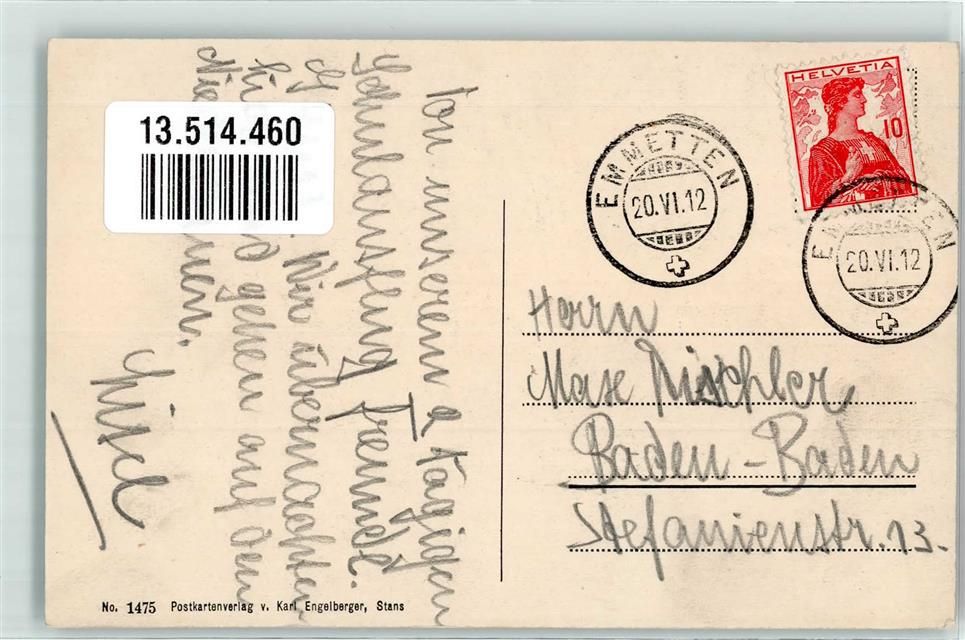 13.514.460
HELVETIA
10
EMMETTEN
20.VI.12
EMMETTEN
20.VI.12
Von unserem 2 tägigen
Schulausflug Freunde.
Wir übernachten
gehen auf den
Herrn
Max Mischler
Baden-Baden
Stefanienstr. 13.
No. 1475 Postkartenverlag v. Karl Engelberger, Stans